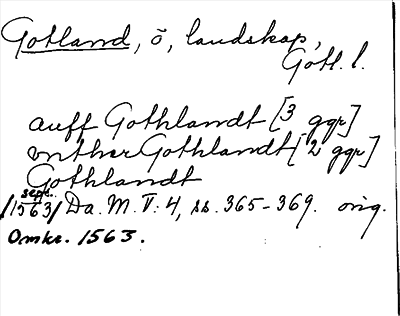 Gotland, ö, landskap,
Gotl. l.
auff Gothlandt [3 ggr]
vnther Gothlandt [2 ggr]
Gothlandt
sept.
/1563/ Da. M. V: 4, ss. 365-369. orig.
Omkr. 1563.